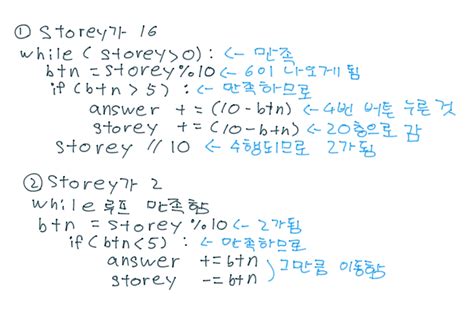 ① storey가 16
while (storey>0): ← 만족
btn = storey%10 ← 6이 나오게 됨
if (btn > 5) : ← 만족하므로
answer += (10-btn) ← 4번 버튼 누른 것
storey += (10-btn) ← 20층으로 감
storey // 10 ← 수행되므로 2가됨
② storey가 2
while 루프 만족함
btn = storey%10 ← 2가됨
if (btn<5) : ← 만족하므로
answer += btn
storey -= btn 그만큼 이동함